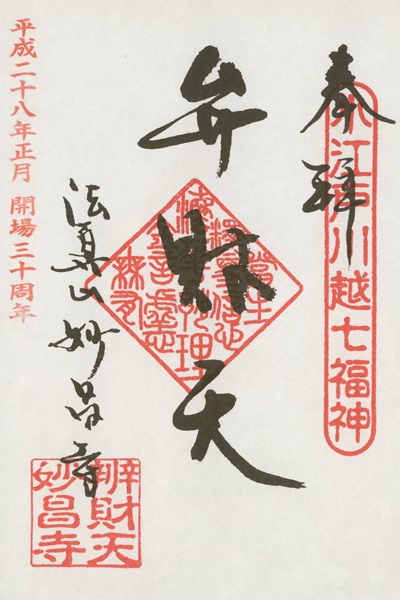 奉拝
小江戸川越七福神
弁財天
法真山妙昌寺
辨財天
妙昌寺
平成二十八年正月 開場三十周年